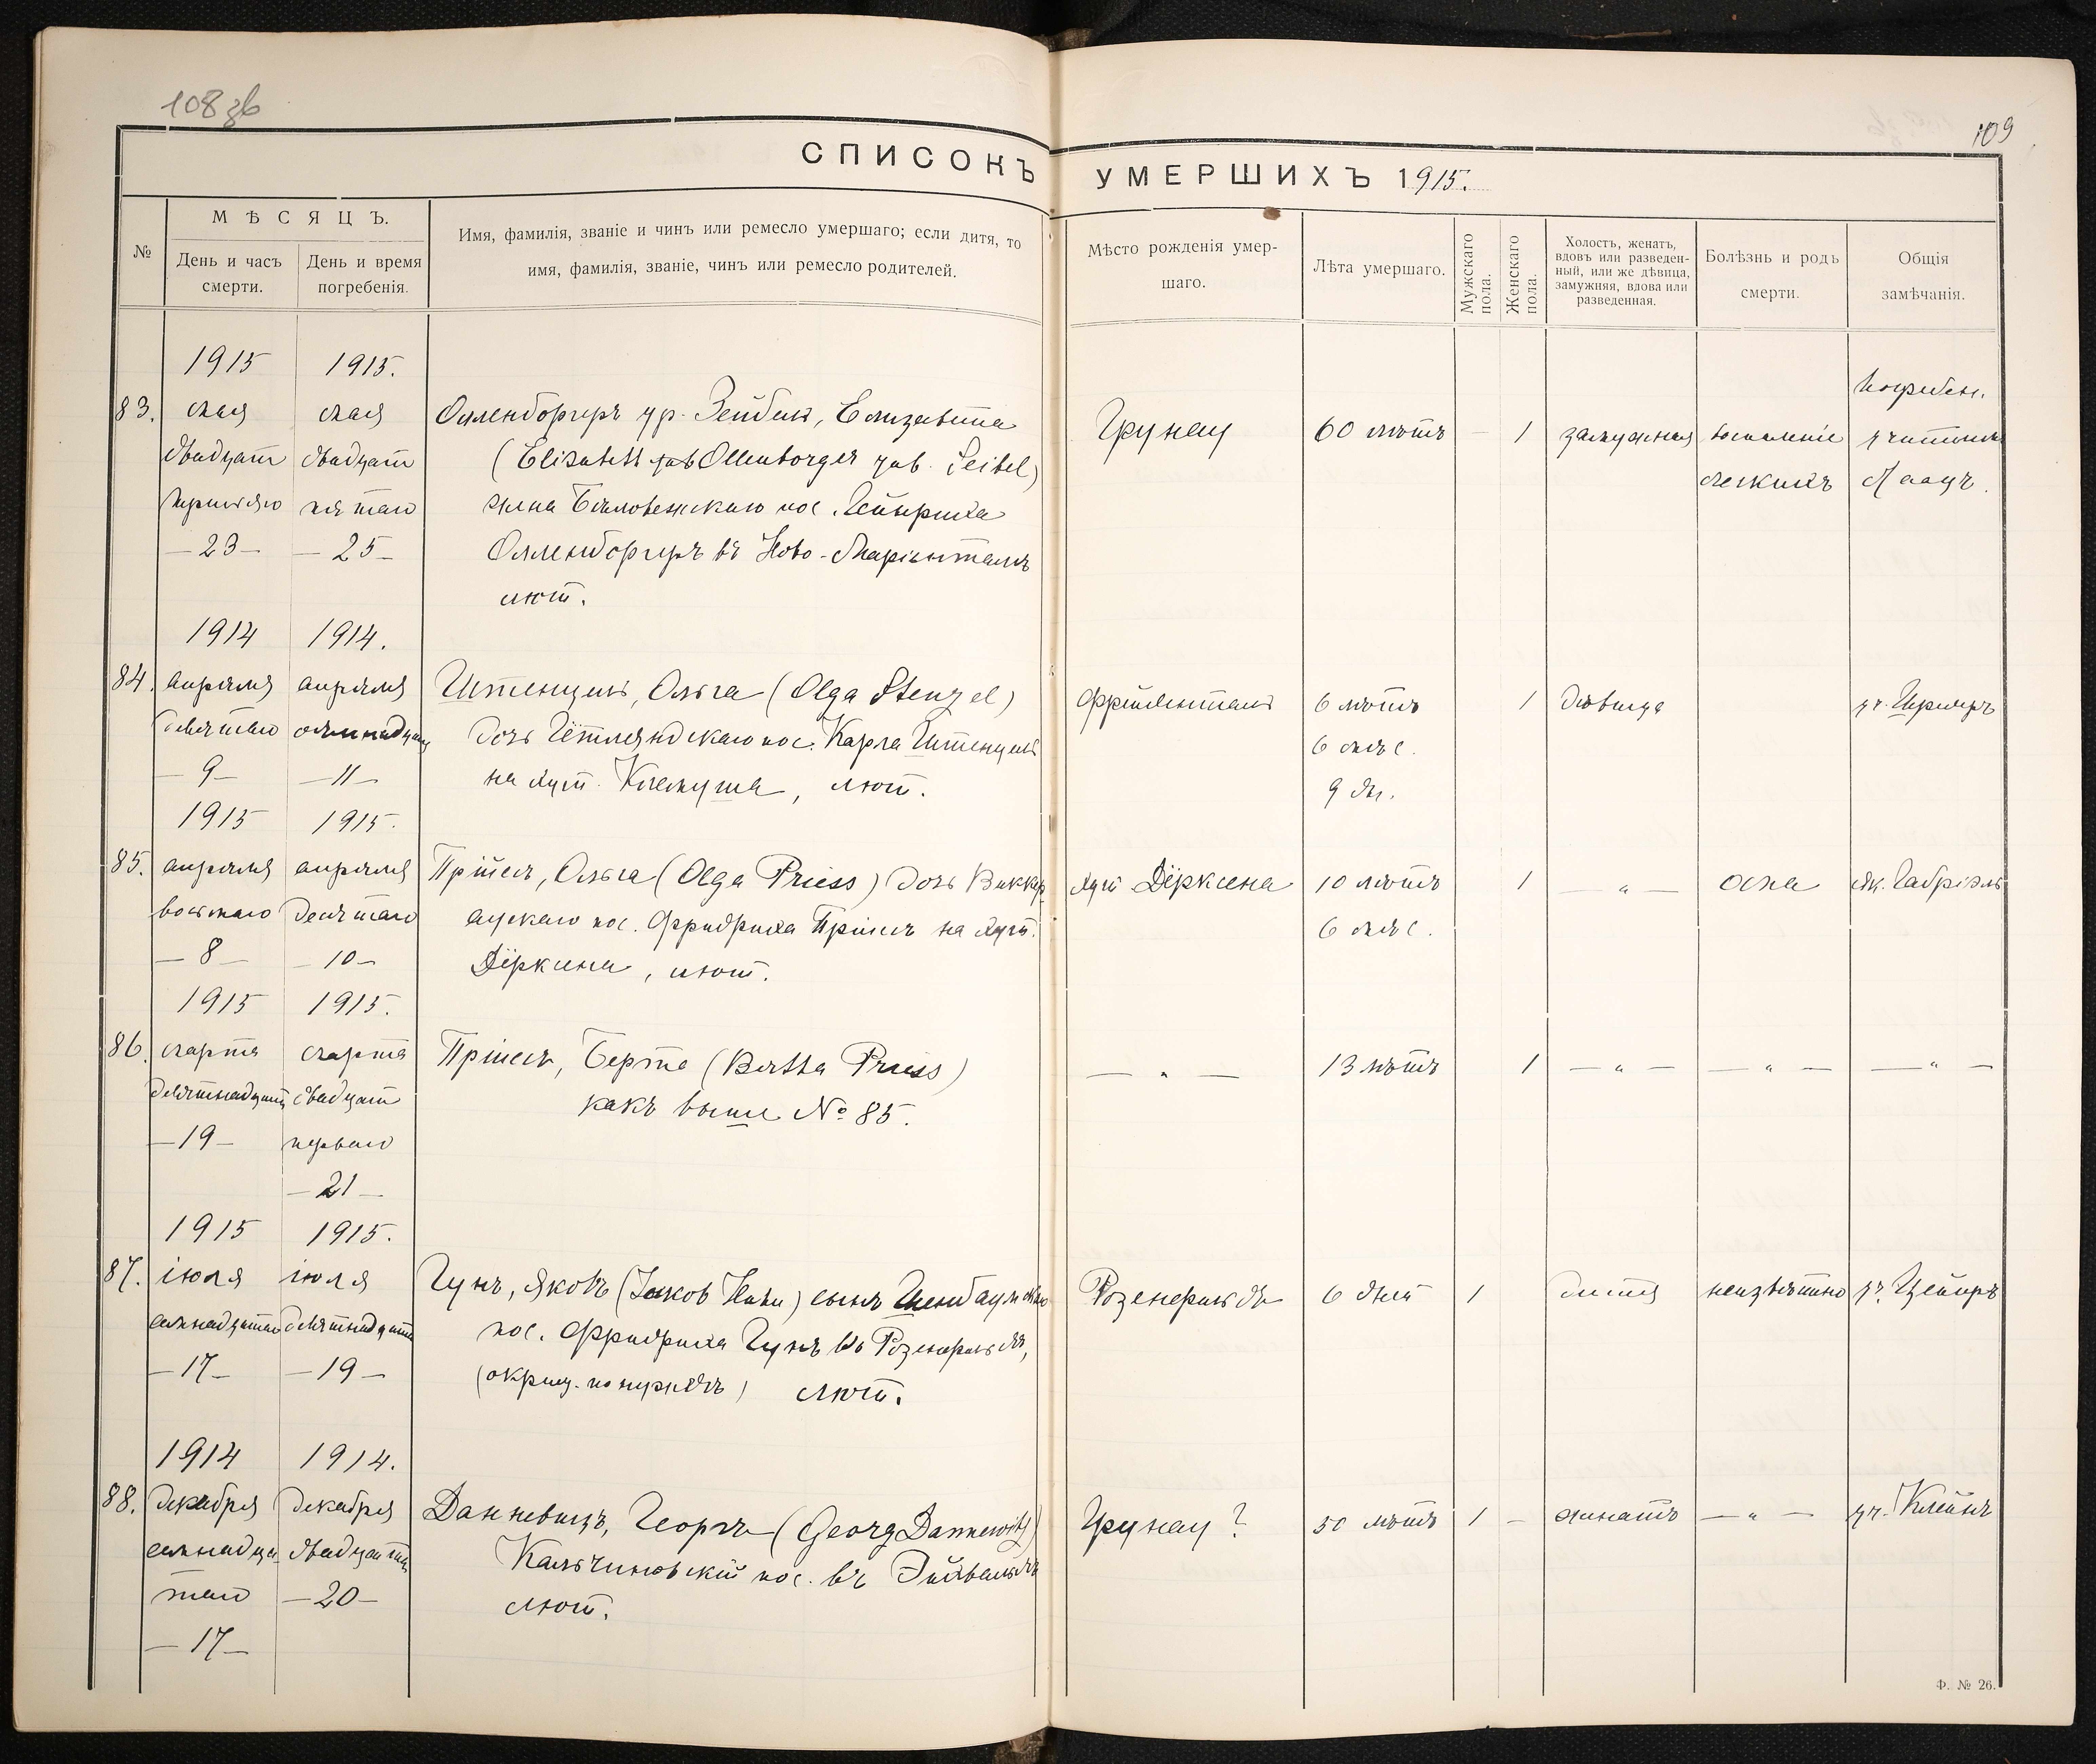 108 зв
109
СПИСОКЪ УМЕРШИХЪ 1915.
№
МѢСЯЦЪ.
День и часъ смерти.
День и время погребенія.
Имя, фамилія, званіе и чинъ или ремесло умершаго; если дитя, то
имя, фамилія, званіе, чинъ или ремесло родителей.
Мѣсто рожденія умер-
шаго.
Лѣта умершаго.
Мужскаго пола.
Женскаго пола.
Холостъ, женатъ,
вдовъ или разведен-
ный, или же дѣвица,
замужняя, вдова или
разведенная.
Болѣзнь и родъ
смерти.
Общія
замѣчанія.
1915 1915.
83. мая мая Олленборгеръ ур. Зейбель, Елизавета Грунау 60 лѣтъ — 1 замужняя воспаленіе погребен.
двадцать двадцать (Elisabeth Ollenborger geb. Seibel) легкихъ учитель
третьяго пятаго жена Бѣловежскаго пос. Гейнриха Маацъ.
—23— —25— Олленборгеръ въ Ново-Маріенталѣ
лют.
1914 1914.
84. апрѣля апрѣля Штенцель, Ольга (Olga Stenzel) Фрейденталь 6 лѣтъ 1 дѣвица уч.
девятаго одиннадцат дочь Гётляндскаго пос. Карла Штенцель 6 мѣс.
—9— —11— на хут. , лют. 9 дн.
1915 1915.
85. апрѣля апрѣля Прiесъ, Ольга (Olga Priess) дочь Виккер хут. Дiрксена 10 лѣтъ 1 — " — оспа Як. Габріэль
восьмаго десятаго аускаго пос. Фридриха Прiесъ на хут. 6 мѣс.
—8— —10— Дiрксена, лют.
1915 1915.
86. марта марта Прiесъ, Берта (Bertha Priess) — " — 13 лѣтъ 1 — " — — " — — " —
девятнадцат двадцать какъ выше № 85.
—19— перваго
—21—
1915 1915.
87. іюля іюля Гунъ, Яковъ (Jakob Huhn) сынъ Розенфельдъ 6 дней 1 дитя неизвѣстно уч.
семнадцатаго девятнадцат пос. Фридриха Гунъ въ Розенфельдѣ,
—17— —19— (окрещ. по нуждѣ) лют.
1914 1914.
88. декабря декабря Данневицъ, Георгъ (Georg Dannewitz) Грунау ? 50 лѣтъ 1 — женатъ — " — уч. Клейнъ
семнадца- двадцатаго Кальчиновскій пос. въ Эйхвальдѣ
таго —20— лют.
—17—
Ф. № 26.